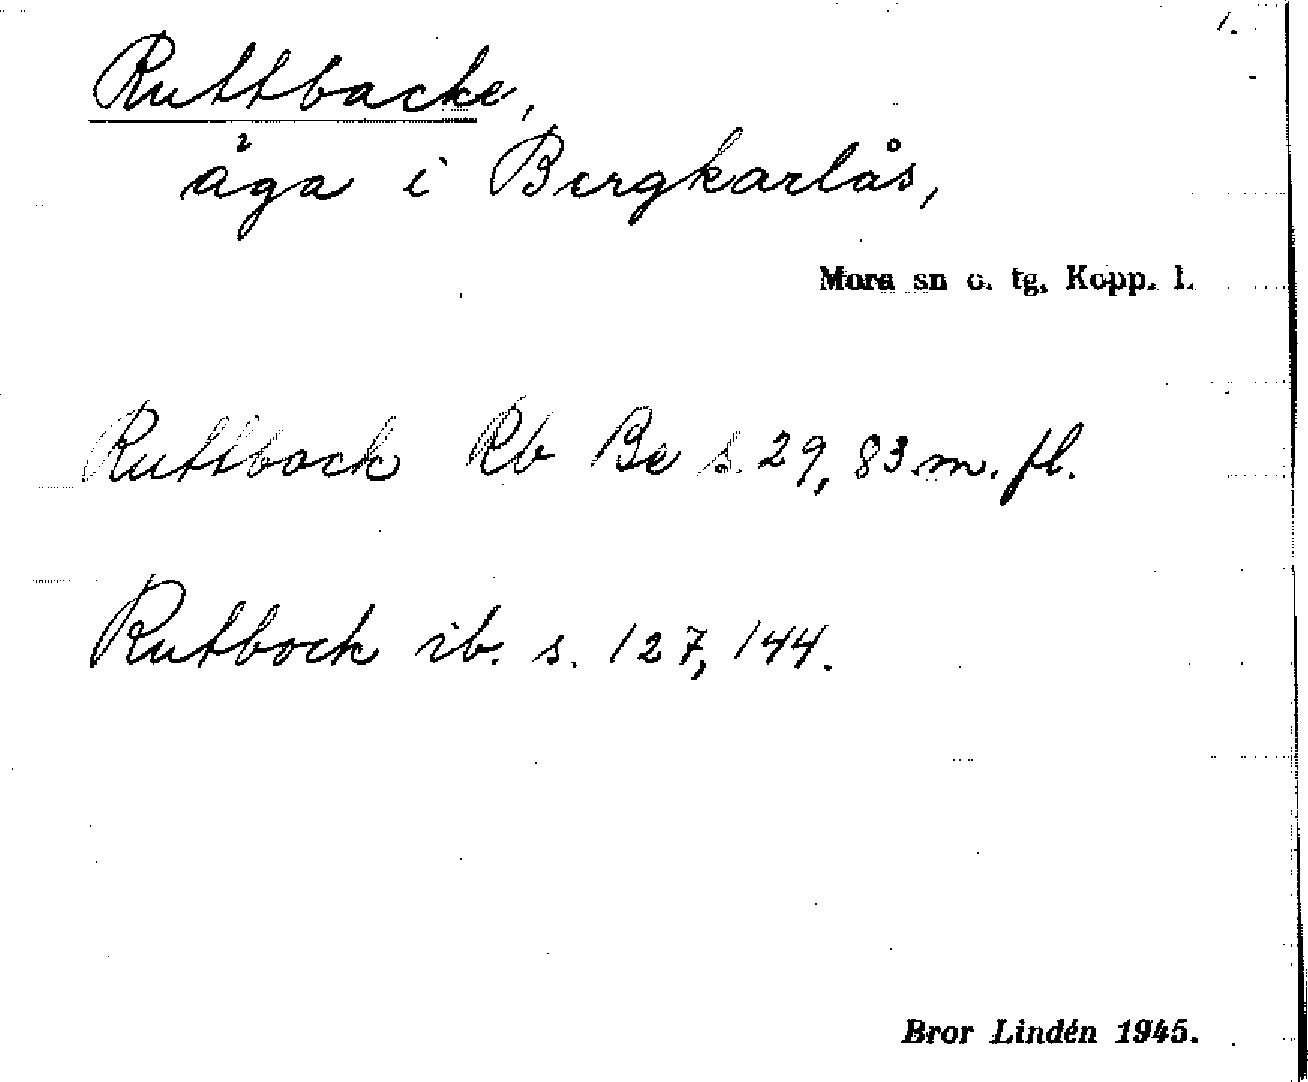 1.
Ruttbacke,
åga i Bergkarlås,
Mora sn o. tg. Kopp. l.
Ruttbock Rb Be s. 29, 83 m. fl.
Rutbock ib. s. 127, 144.
Bror Lindén 1945.